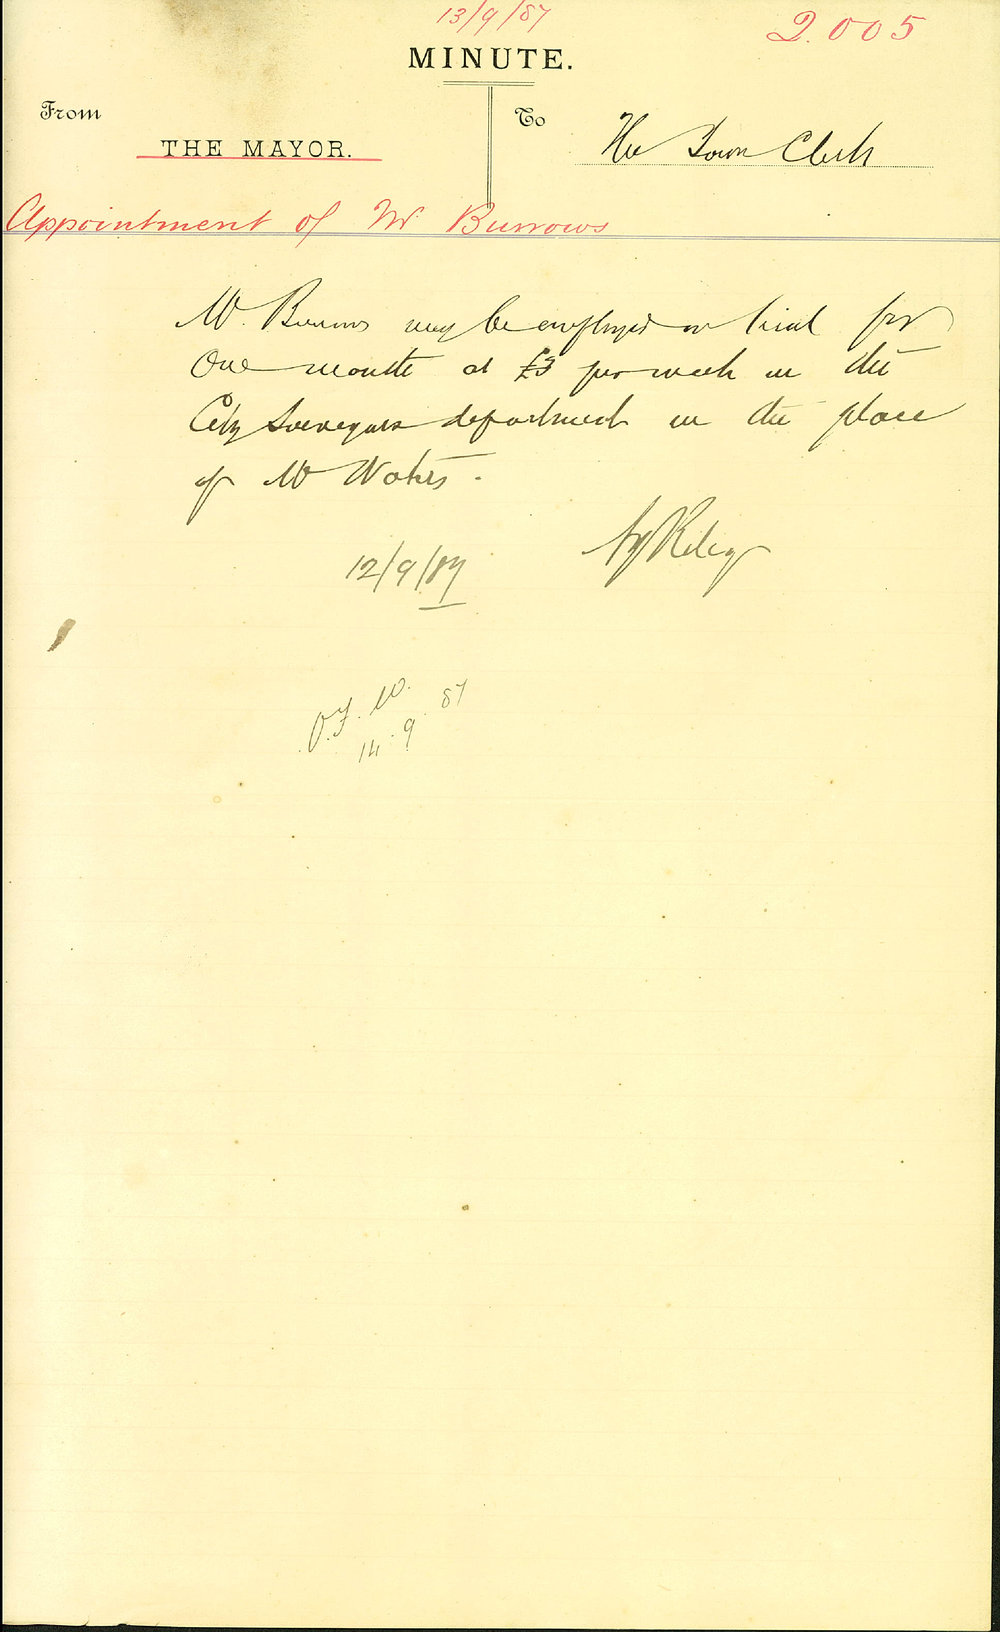 13/9/87
2005
MINUTE.
From
To
THE MAYOR.
The Town Clerk
Appointment of Mr Burrows
Mr. Burrows may be employed on trial for
One month at £3 per week in the
City Surveyors department in the place
of Mr Waters.
12/9/87
AJ Riley
14.9.87